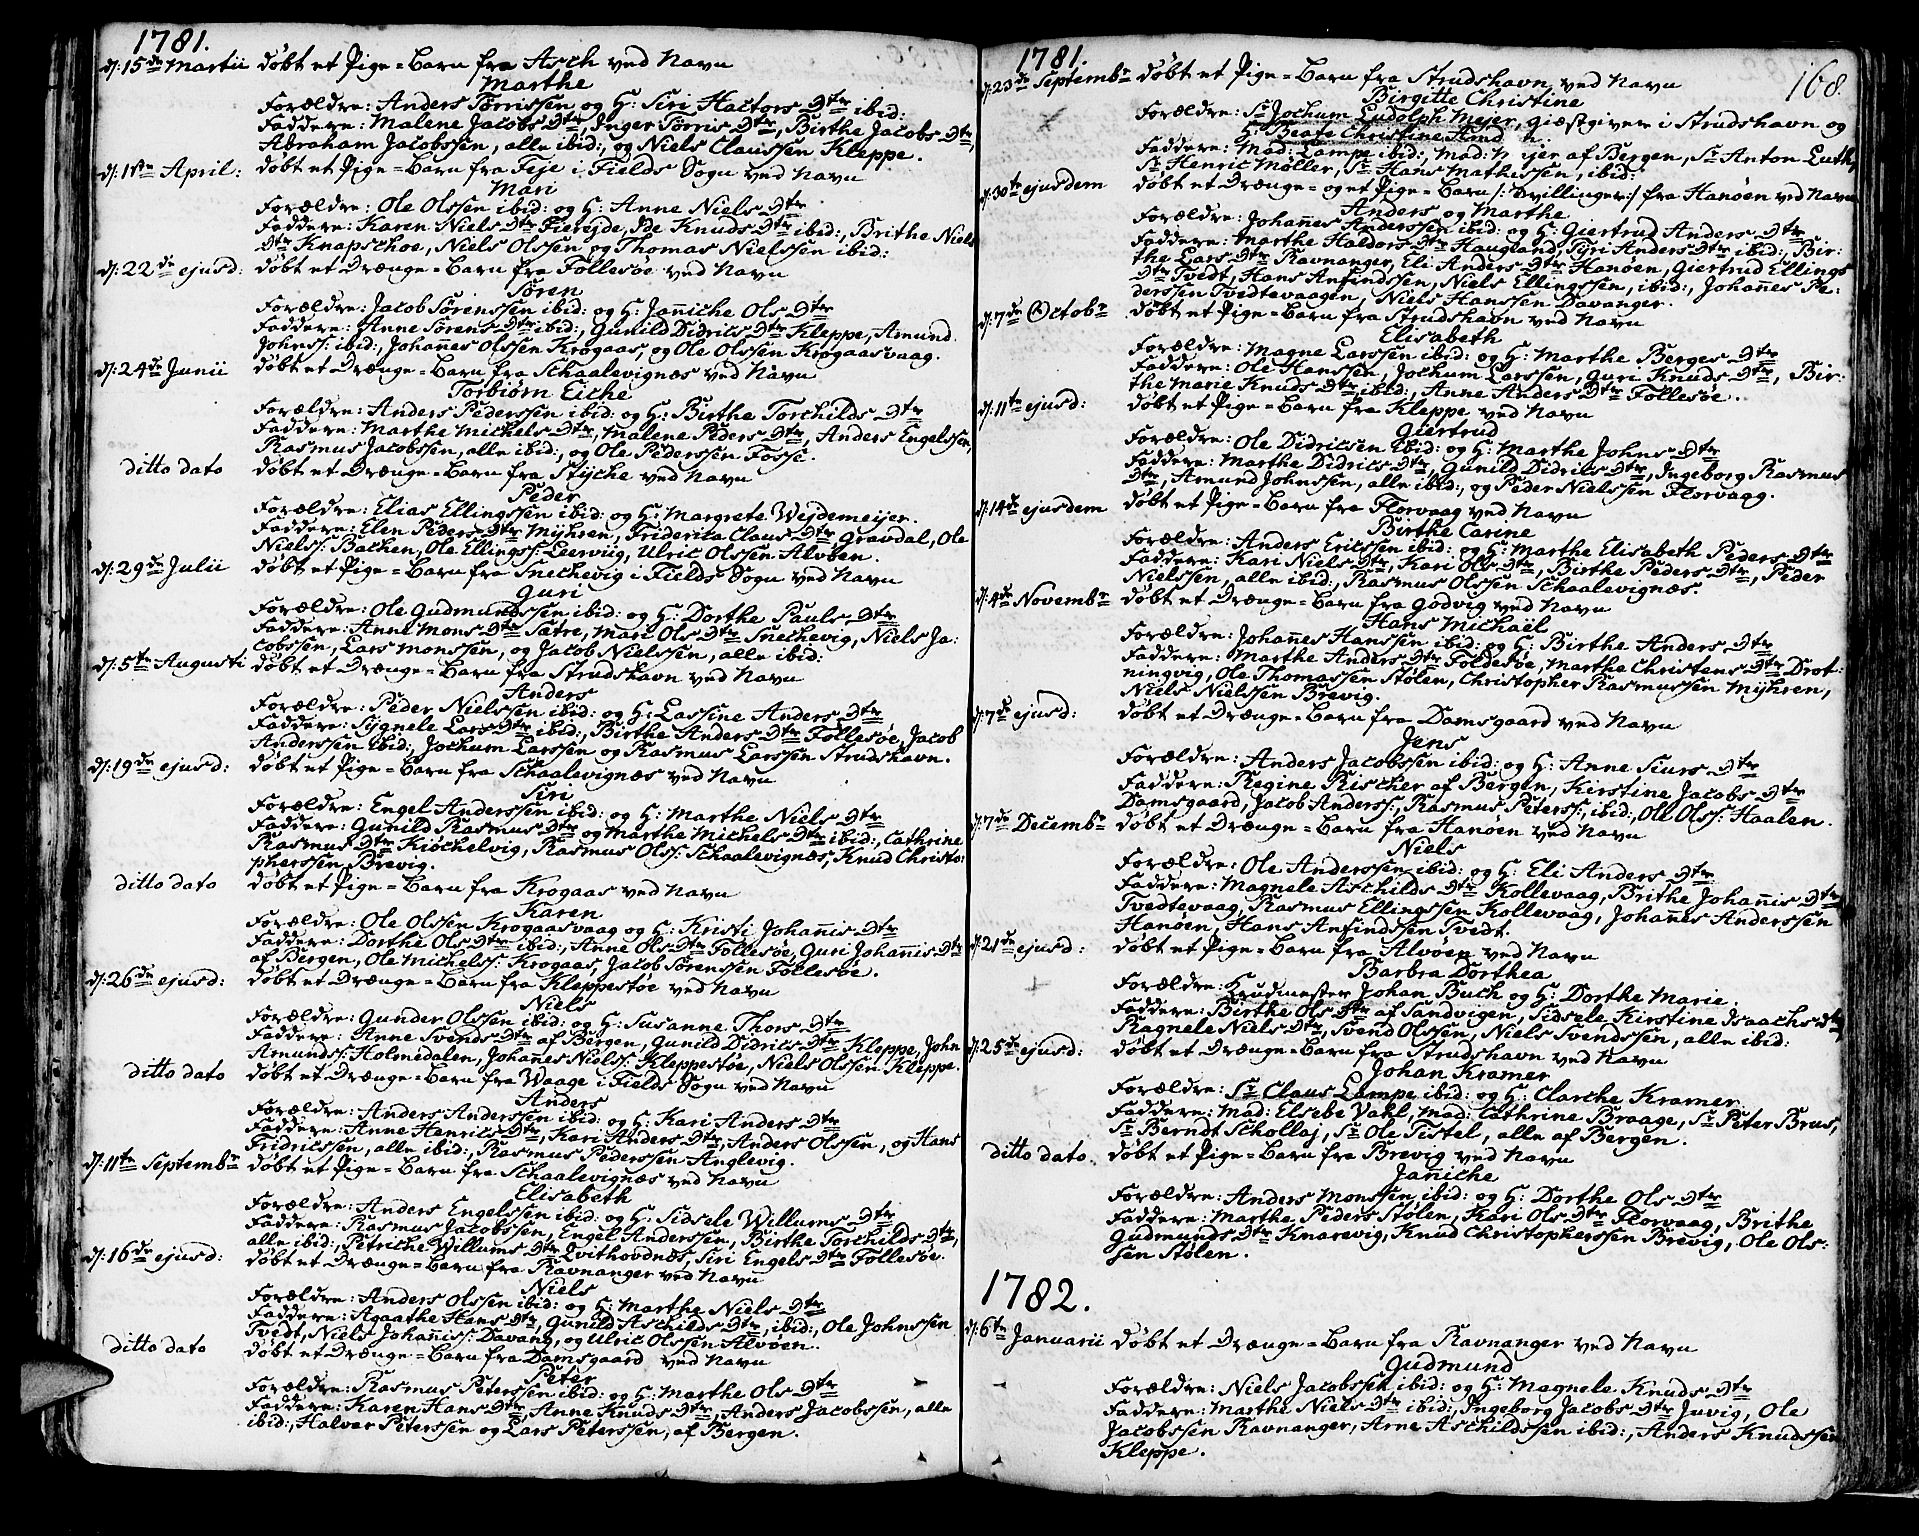 1781.
d: 15de Martii døbt et Pige-Barn fra Asch ved Navn
Marthe
Forældre: Anders Tørrissen og H: Siri Hactors Dtr ibid:
Faddere: Malene Jacobs Dtr, Inger Tørris Dtr, Birthe Jacobs Dtr,
Abraham Jacobssen, alle ibid:, og Niels Claussen Kleppe.
d: 1ste April: døbt et Pige-Barn fra Feje i Fields Sogn ved Navn
Mari
Forældre: Ole Olssen ibid: og H: Anne Niels Dtr
Faddere: Karen Niels Dtr Fierejde, Ide Knuds Dtr ibid:, Brithe Niels
Dtr Knapschoe, Niels Olssen og Thomas Nielssen ibid:
d: 22de ejusd: døbt et Drænge-Barn fra Føllesøe ved Navn
Søren
Forældre: Jacob Sørenssen ibid: og H: Janniche Ols Dtr
Faddere: Anne Sørens Dtr ibid:, Gunild Didrics Dtr Kleppe, Amund
Johns: ibid:, Johannes Olssen Krogaas, og Ole Olssen Krogaasvaag.
d: 24de Junii døbt et Drænge-Barn fra Schaalevignæs ved Navn
Torbiørn Eiche
Forældre: Anders Pederssen ibid: og H: Birthe Torchilds Dtr
Faddere: Marthe Michels Dtr, Malene Peders Dtr, Anders Engelssen,
Rasmus Jacobssen, alle ibid:, og Ole Pederssen Fosse.
ditto dato døbt et Drænge-Barn fra Stÿche ved Navn
Peder
Forældre: Elias Ellingssen ibid: og H: Margrete Wejdemeijer.
Faddere: Elen Peders Dtr Mÿhren, Friderica Claus Dtr Gravdal, Ole
Niels: Bachen, Ole Ellings: Leervig, Ulric Olssen Alvøen.
d: 29de Julii døbt et Pige-Barn fra Snechevig i Fields Sogn ved Navn
Guri
Forældre: Ole Gudmundssen ibid: og H: Dorthe Pauls Dtr
Faddere: Anne Mons Dtr Satre, Mari Ols Dtr Snechevig, Niels Ja:
cobssen, Lars Monssen, og Jacob Nielssen, alle ibid:
d: 5te Augusti døbt et Drænge-Barn fra Strudshavn ved Navn
Anders
Forældre: Peder Nielssen ibid: og H: Lassine Anders Dtr
Faddere: Sÿgnele Lars Dtr ibid:, Birthe Anders Dtr Føllesøe, Jacob
Anderssen ibid:, Jochum Larssen og Rasmus Larssen Strudshavn.
d: 19de ejusd: døbt et Pige-Barn fra Schaalevignæs ved Navn
Siri
Forældre: Engel Anderssen ibid: og H: Marthe Niels Dtr
Faddere: Gunild Rasmus Dtr og Marthe Michels Dtr ibid:, Cathrine
Rasmus Dtr Kiøchelvig, Rasmus Olss: Schaalevignæs, Knud Christo:
pherssen Brevig.
ditto dato døbt et Pige-Barn fra Krogaas ved Navn
Karen
Forældre: Ole Olssen Krogaasvaag og H: Kristi Johannis Dtr
Faddere: Dorthe Ols Dtr ibid:, Anne Ols Dtr Føllesøe, Guri Johannis Dtr
af Bergen, Ole Michels: Krogaas, Jacob Sørenssen Føllesøe.
d: 26de ejusd: døbt et Drænge-Barn fra Kleppestøe ved Navn
Niels
Forældre: Gunder Olssen ibid: og H: Susanne Thors Dtr
Faddere: Anne Svends Dtr af Bergen, Gunild Didrics Dtr Kleppe, John
Amunds: Holmedalen, Johannes Niels: Kleppestøe, Niels Olssen Kleppe.
ditto dato døbt et Drænge-Barn fra Waage i Fields Sogn ved Navn
Anders
Forældre: Anders Anderssen ibid: og H: Kari Anders Dtr
Faddere: Anne Henrics Dtr, Kari Anders Dtr, Anders Olssen, og Hans
Fridricssen, alle ibid:, Rasmus Pederssen Anglevig.
d: 11te Septembr døbt et Pige-Barn fra Schaalevignæs ved Navn
Elisabeth
Forældre: Anders Engelssen ibid: og H: Sidsele Willums Dtr
Faddere: Rasmus Jacobssen, Engel Anderssen, Birthe Torchilds Dtr,
alle ibid:, Petriche Willums Dtr Qvithovdnæs, Siri Engels Dtr Føllesøe.
d: 16de ejusd: døbt et Drænge-Barn fra Ravnanger ved Navn
Niels
Forældre: Anders Olssen ibid: og H: Marthe Niels Dtr
Faddere: Agaathe Hans Dtr, Gunild Aschilds Dtr, ibid:, Ole Johnssen
Tvedt, Niels Johannis: Davang, og Ulric Olssen Alvøen.
ditto dato døbt et Drænge-Barn fra Damsgaard ved Navn
Peter
Forældre: Rasmus Peterssen ibid: og H: Marthe Ols Dtr
Faddere: Karen Hans Dtr, Anne Knuds Dtr, Anders Jacobssen, alle
ibid:, Halvar Peterssen og Lars Peterssen, af Bergen.
1781.
168
d: 23de Septembr døbt et Pige-Barn fra Strudshavn ved Navn
Birgitte Christine
Forældre: Sr Jochum Ludolph Meyer, giæstgiver i Strudshavn og
H: Beate Christine
Faddere: Mad: Lampe ibid:, Mad: Meijer af Bergen, Sr Anton Luth,
Sr Henric Møller, Sr Hans Mathiessen, ibid:
d: 30te ejusdem døbt et Drænge- og et Pige-Barn /: Tvillinger :/ fra Hanøen ved Navn
Anders og Marthe
Forældre: Johannes Anderssen ibid: og H: Giertrud Anders Dtr
Faddere: Marthe Haldors Dtr Haugland, Tÿri Anders Dtr ibid:, Bir:
the Lars Dtr Ravnanger, Eli Anders Dtr Hanøen, Giertrud Ellings
Dtr Tvedt, Hans Anfindssen, Niels Ellingssen, ibid:, Johannes Pe:
derssen Tvedtevaagen, Niels Hanssen Davanger.
d: 7de Octobr døbt et Pige-Barn fra Strudshavn ved Navn
Elisabeth
Forældre: Magne Larssen ibid: og H: Marthe Berges Dtr
Faddere: Ole Hanssen, Jochum Larssen, Guri Knuds Dtr, Bir:
the Marie Knuds Dtr ibid:, Anne Anders Dtr Føllesøe.
d: 11te ejusd: døbt et Pige-Barn fra Kleppe ved Navn
Giertrud
Forældre: Ole Didricsen ibid: og H: Marthe Johns Dtr
Faddere: Marthe Didrics Dtr, Gunild Didrics Dtr, Ingeborg Rasmus
Dtr, Amund Johnssen, alle ibid:, og Peder Nielssen Florvaag.
d: 14de ejusdem døbt et Pige-Barn fra Florvaag ved Navn
Birthe Carine
Forældre: Anders Ericssen ibid: og H: Marthe Elisabeth Peders Dtr
Faddere: Kari Niels Dtr, Kari Ols Dtr, Birthe Peders Dtr, Peder
Nielssen, alle ibid:, Rasmus Olssen Schaalevignæs.
d: 4de Novembr døbt et Drænge-Barn fra Godvig ved Navn
Hans Michael
Forældre: Johannes Hanssen ibid: og H: Birthe Anders Dtr
Faddere: Marthe Anders Dtr Foldesøe, Marthe Christens Dtr Drot:
ningvig, Ole Thomassen Stølen, Christopher Rasmussen Mÿhren,
Niels Nielssen Brevig.
d: 7de ejusd: døbt et Drænge-Barn fra Damsgaard ved Navn
Jens
Forældre: Anders Jacobssen ibid: og H: Anne Siurs Dtr
Faddere: Regine Rischer af Bergen, Kirstine Jacobs Dtr
Damsgaard, Jacob Anders:, Rasmus Peters:, ibid:, Ole Olss: Haalen.
d: 7de Decembr døbt et Drænge-Barn fra Hanøen ved Navn
Niels
Forældre: Ole Anderssen ibid: og H: Eli Anders Dtr
Faddere: Magnele Aschilds Dtr Kollevaag, Brithe Johannis Dtr
Tvedtevaag, Rasmus Ellingssen Kollevaag, Johannes Anderssen
Hanøen, Hans Anfindssen Tvedt.
d: 21de ejusd: døbt et Pige-Barn fra Alvøen ved Navn
Barbra Dorthea
Forældre: Krudmester Johan Buch og H: Dorthe Marie.
Faddere: Birthe Ols Dtr af Sandvigen, Sidsele Kirstine Isaachs Dtr,
Ragnele Niels Dtr, Svend Olssen, Niels Svendssen, alle ibid:
d: 25de ejusd: døbt et Drænge-Barn fra Strudshavn ved Navn
Johan Kramer
Forældre: Sr Claus Lampe ibid: og H: Clarche Kramer
Faddere: Mad: Elsebe Vahl, Mad: Cathrine Braage, Sr Peter Brus,
Sr Berndt Schollaj, Sr Ole Tistel, alle af Bergen.
ditto dato. døbt et Pige-Barn fra Brevig ved Navn
Janniche
Forældre: Anders Monssen ibid: og H: Dorthe Ols Dtr
Faddere: Marthe Peders Stølen, Kari Ols Dtr Florvaag, Brithe
Gudmunds Dtr Knarevig, Knud Christopherssen Brevig, Ole Ols:
sen Stølen.
1782.
d: 6te Januarii døbt et Drænge-Barn fra Ravnanger ved Navn
Gudmund
Forældre: Niels Jacobssen ibid: og H: Magnele Knuds Dtr
Faddere: Marthe Niels Dtr ibid:, Ingeborg Jacobs Dtr Juvig, Ole
Jacobssen Ravnanger, Arne Aschildssen ibid:, Anders Knudssen
Kleppe.